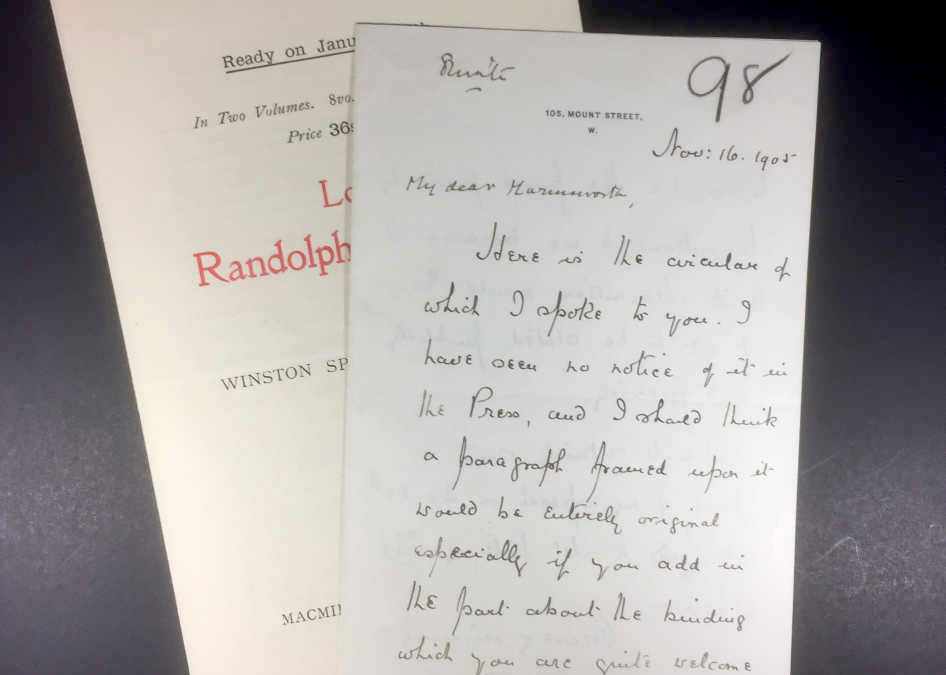 Ready on Janu
In Two Volumes. 8vo.
Price 36s
Lo
Randolph
WINSTON SP
MACMI
98
105, MOUNT STREET,
W.
Nov: 16. 1905
My dear Harmsworth,
Here is the circular of
which I spoke to you. I
have seen no notice of it in
the Press, and I should think
a paragraph framed upon it
would be entirely original
especially if you add in
the part about the binding
which you are quite welcome